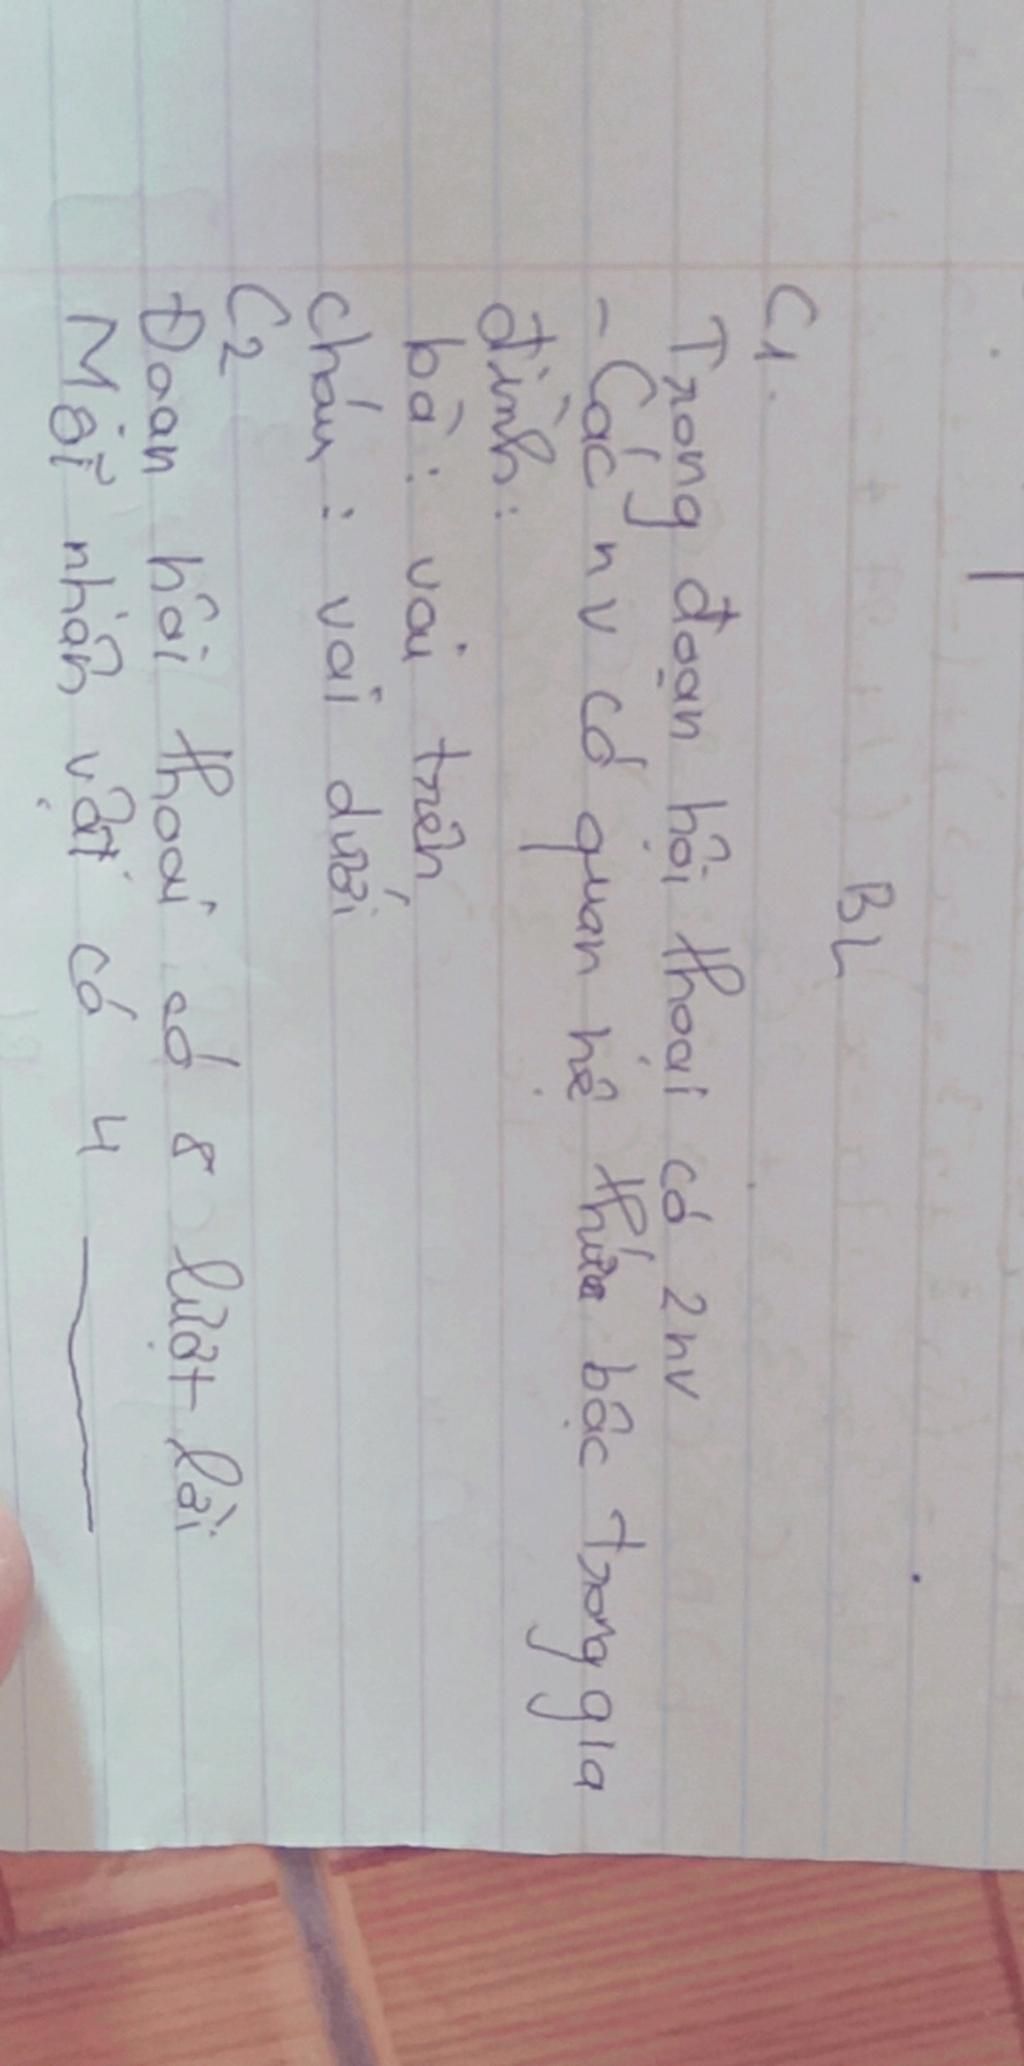 BL
C1.
Trong đoạn hội thoại có 2 nv
- Các nv có quan hệ thứa bậc trong gia
đình:
bà: vai trên
cháu: vai dưới
C2
Đoan hôi thoai có 8 lượt lời
Mỗi nhân vật có 4